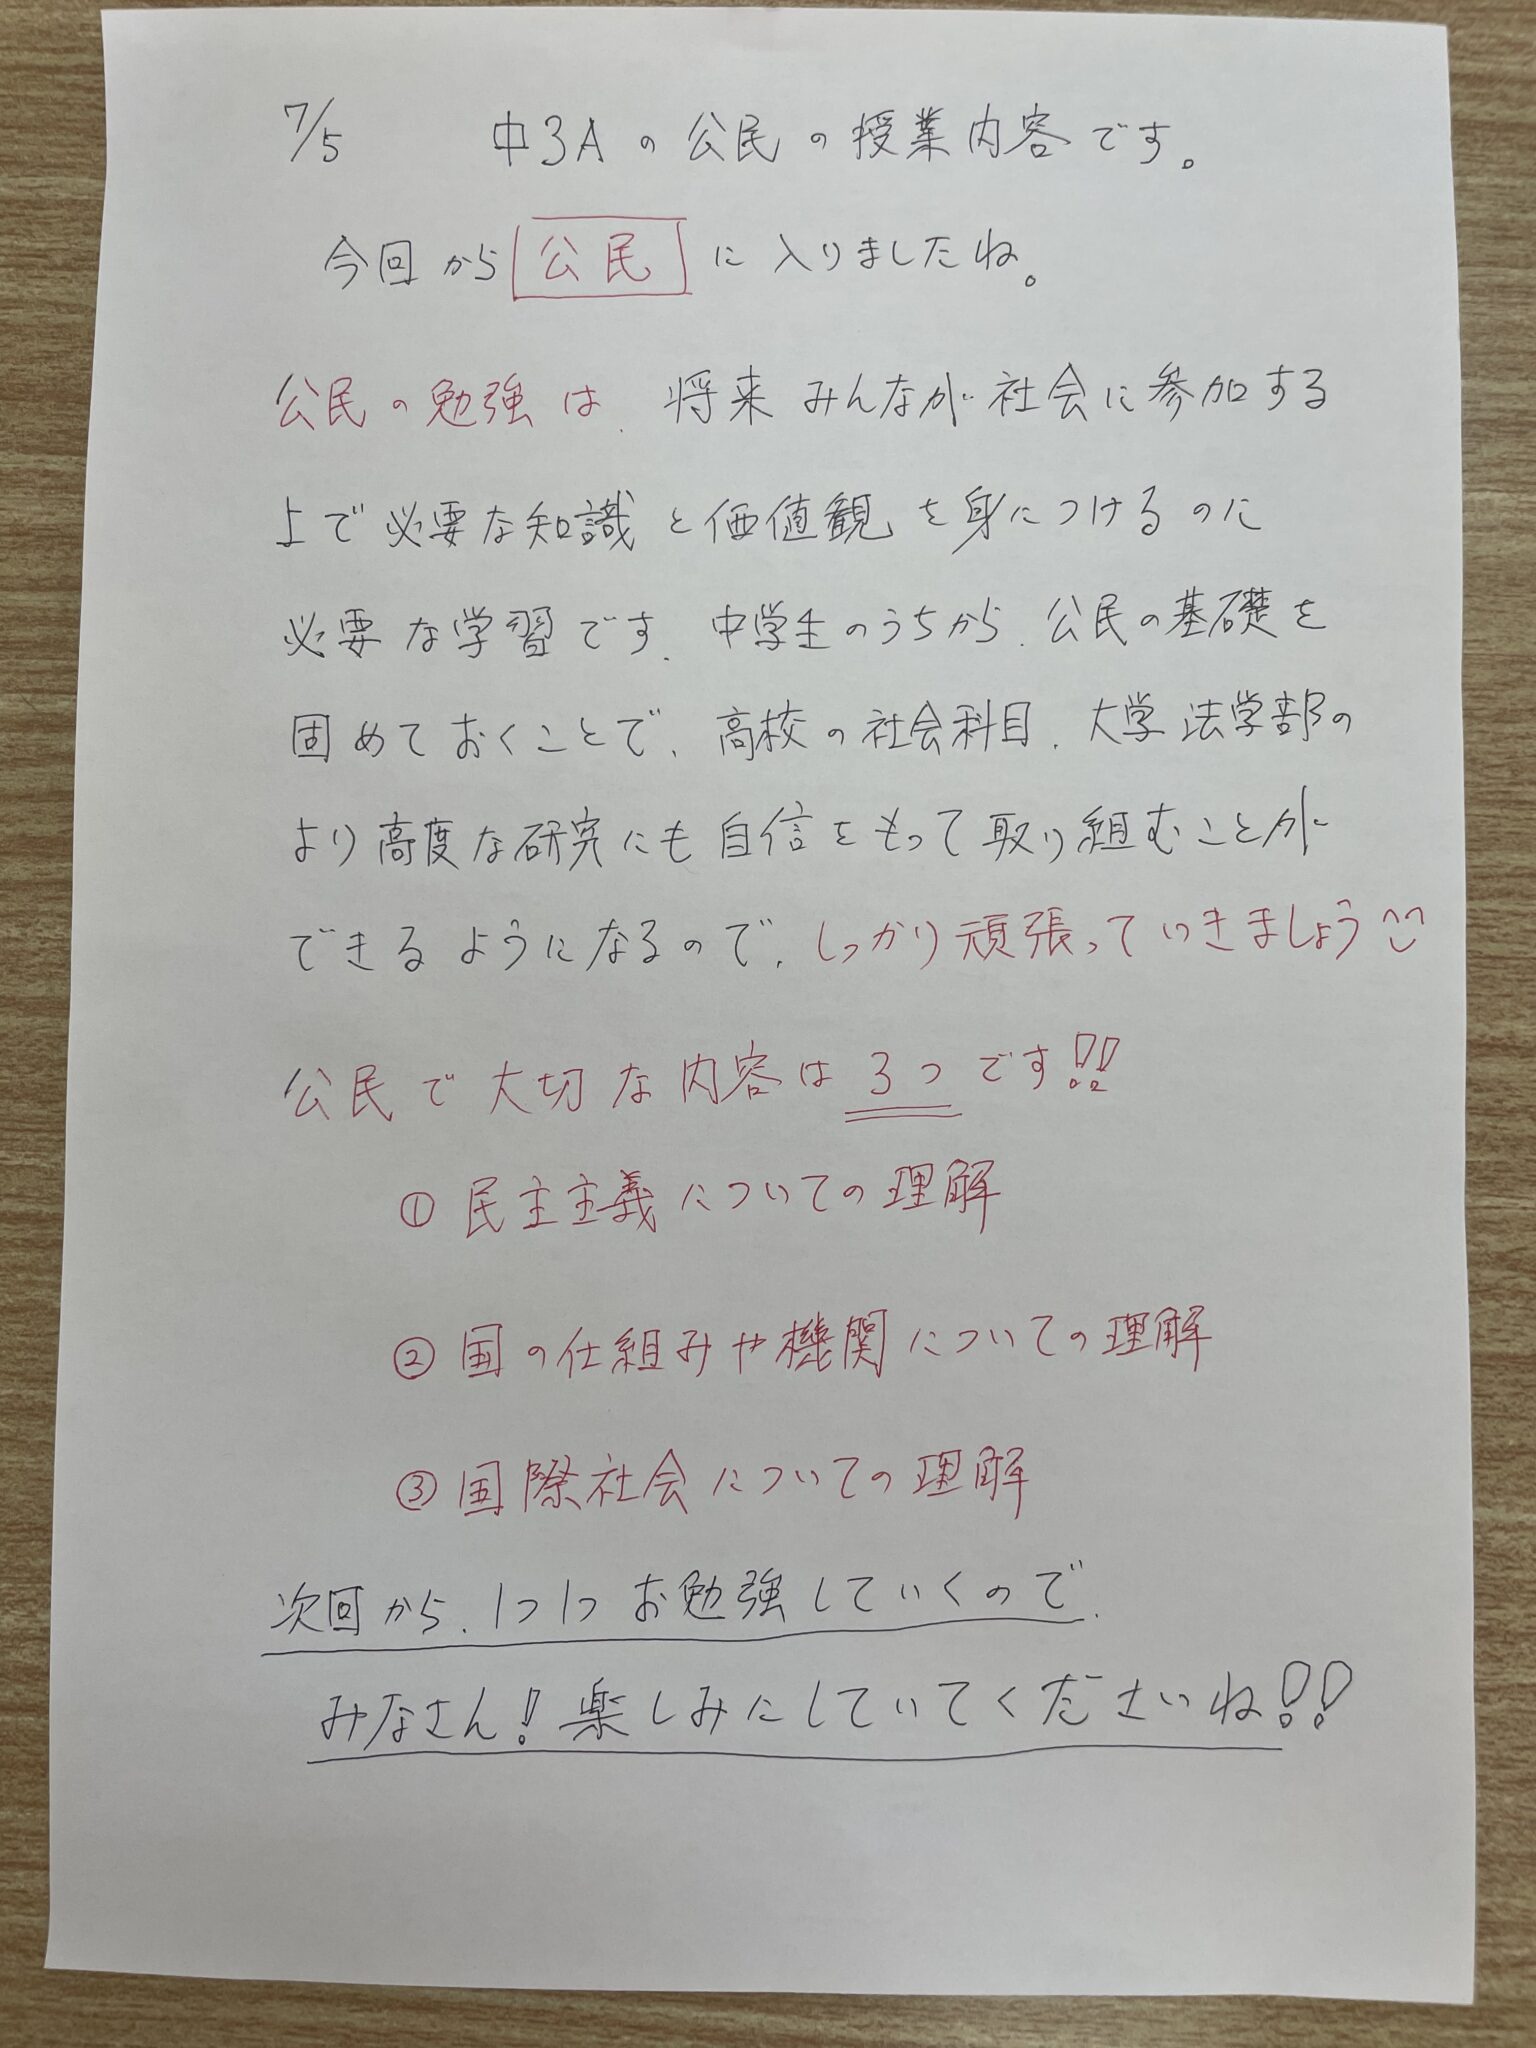 7/5 中3Aの公民の授業内容です。
今回から公民に入りましたね。
公民の勉強は、将来みんなが社会に参加する
上で必要な知識と価値観を身につけるのに
必要な学習です。中学生のうちから、公民の基礎を
固めておくことで、高校の社会科目、大学法学部の
より高度な研究にも自信をもって取り組むことが
できるようになるので、しっかり頑張っていきましょう^^
公民で大切な内容は3つです!!
① 民主主義についての理解
② 国の仕組みや機関についての理解
③ 国際社会についての理解
次回から、1つ1つお勉強していくので、
みなさん!楽しみにしていてくださいね!!